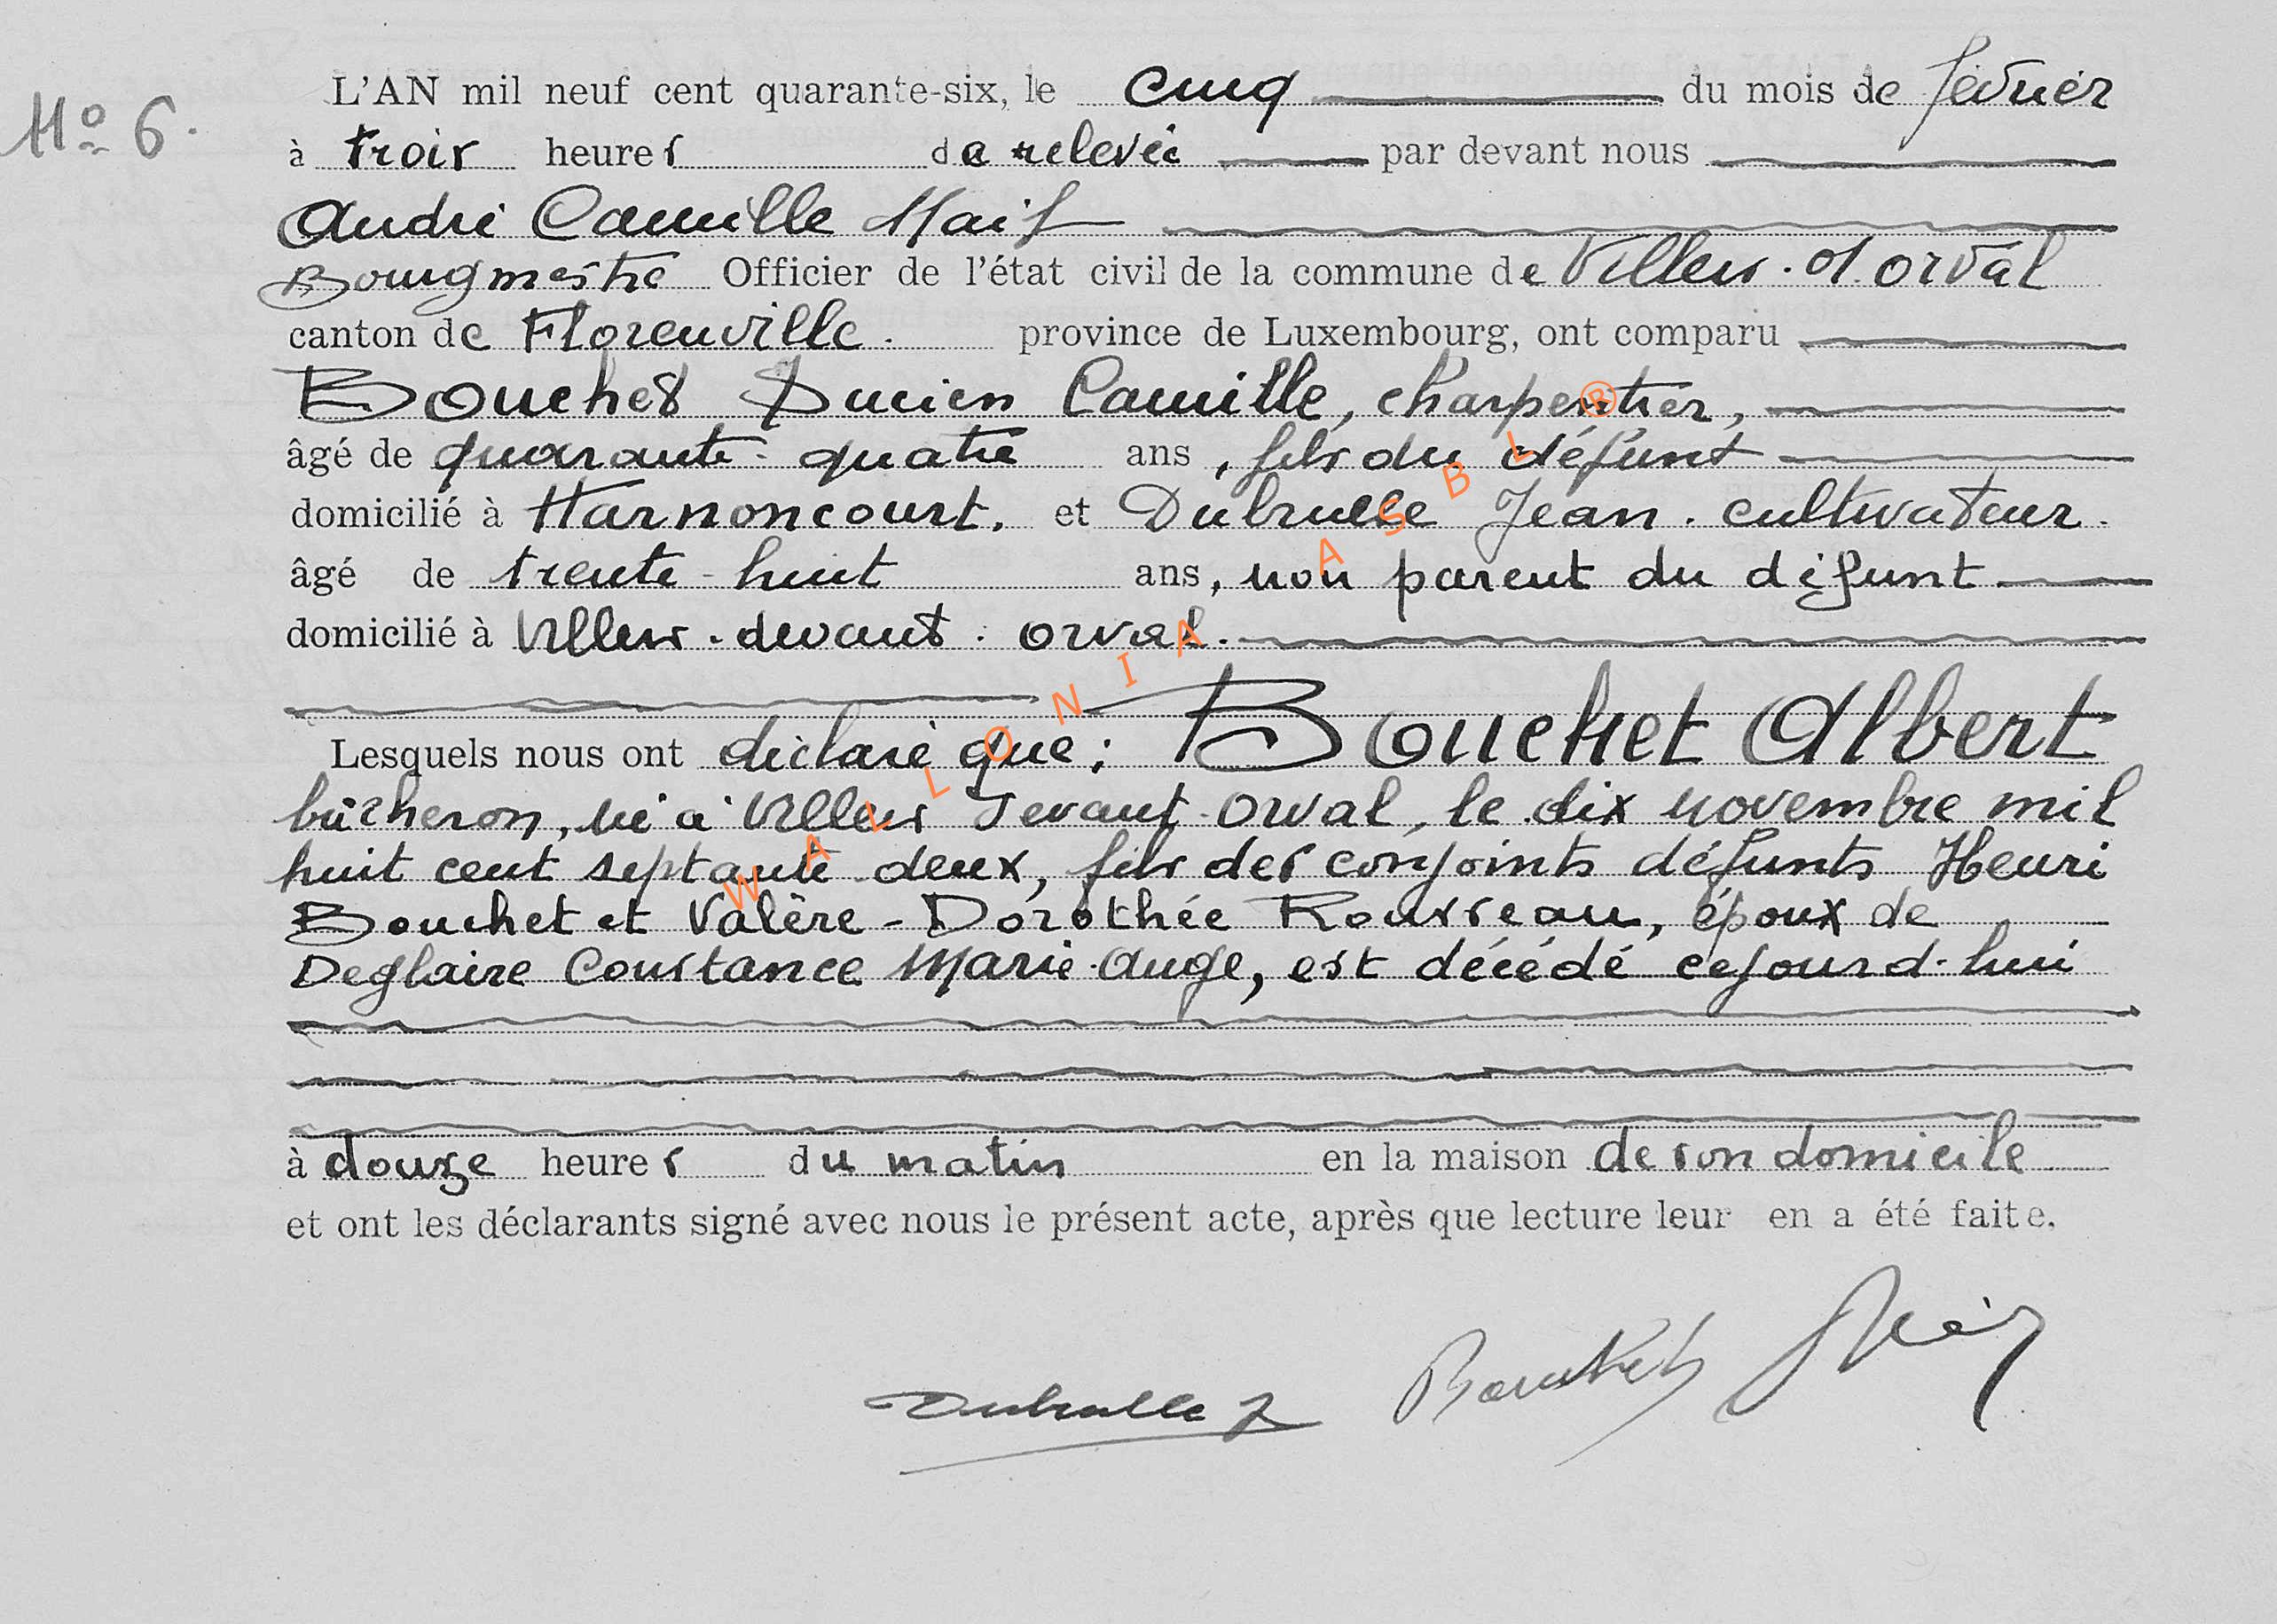 N° 6.
L'AN mil neuf cent quarante-six, le cinq du mois de février
à trois heures de relevée par devant nous
André Camille
Bourgmestre Officier de l'état civil de la commune de Villers-d-orval
canton de Florenville. province de Luxembourg, ont comparu
Bouchet Lucien Camille, charpentier,
âgé de quarante-quatre ans, fils du défunt
domicilié à Harnoncourt, et Dubruelle Jean. cultivateur.
âgé de trente-huit ans, non parent du défunt
domicilié à Villers-devant-orval.
Lesquels nous ont déclaré que: Bouchet Albert
bûcheron, né à Villers devant-Orval, le dix novembre mil
huit cent septante-deux, fils des conjoints défunts Henri
Bouchet et Valère-Dorothée Rousseau, époux de
Deglaire Constance Marie-Ange, est décédé cejourd-hui
à douze heures du matin en la maison de son domicile
et ont les déclarants signé avec nous le présent acte, après que lecture leur en a été faite.
Dubruelle J Bouchet
WALLONIA ASBL ®